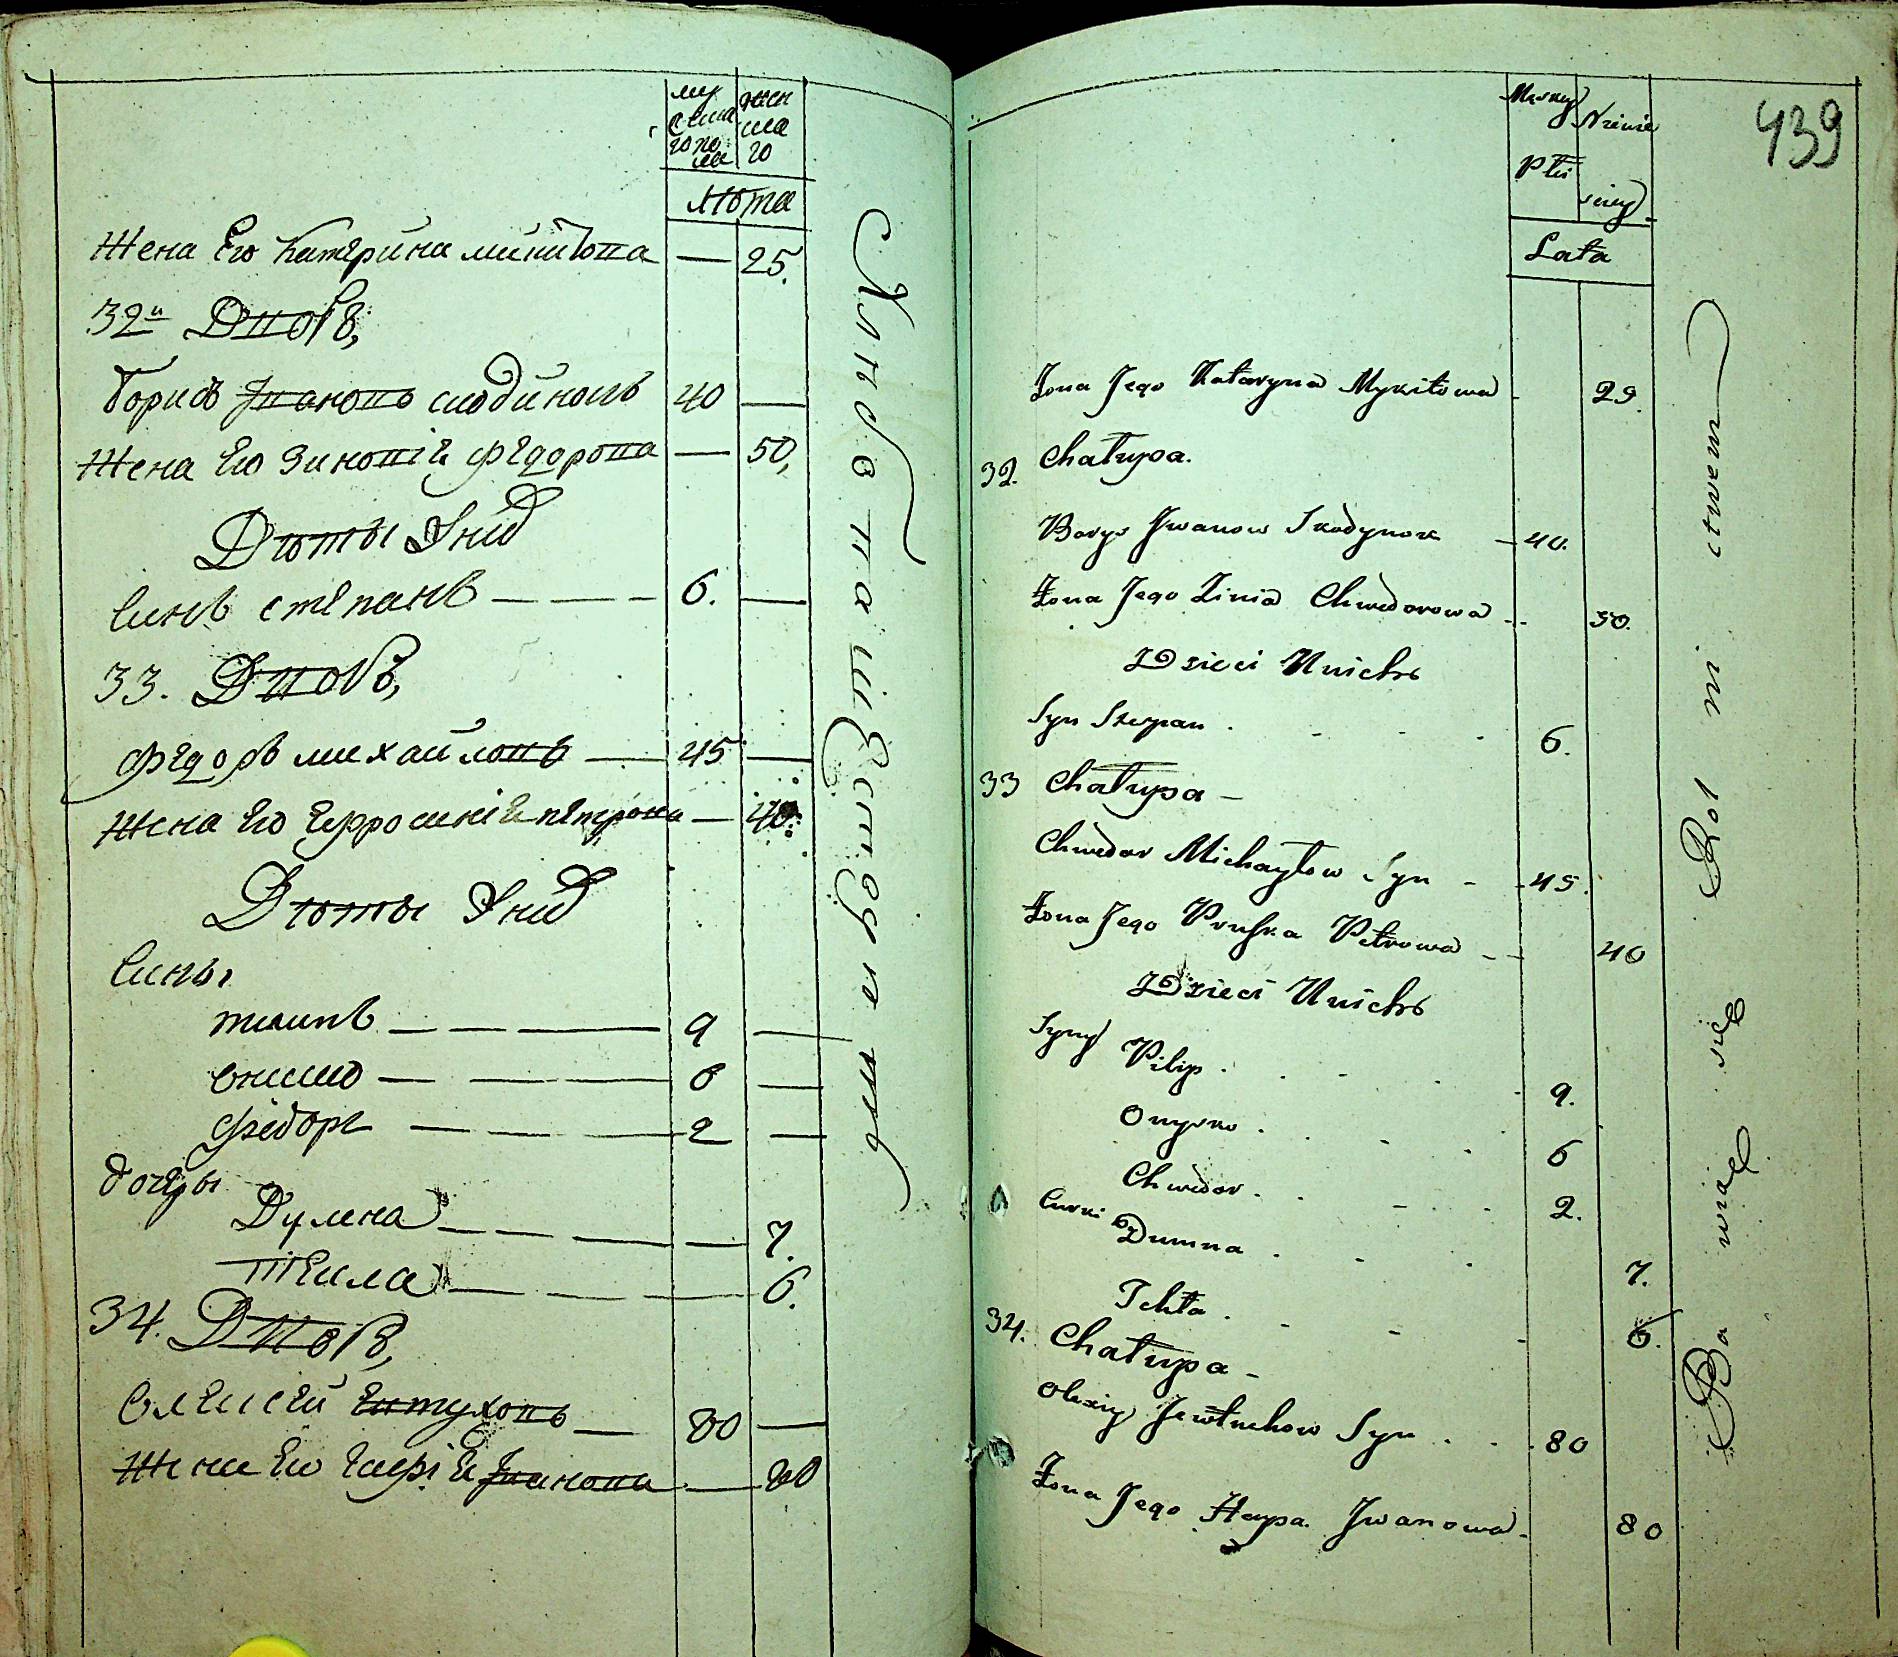 му
ска
го по
ла
жен
ска
го
Лѣта
Жена Его Катерина Микитова — 25.
32й Дворъ,
Борисъ Ивановъ Скодинокъ 40 —
Жена Его Зиновія Федорова — 50,
Дѣти Ихъ
Синъ Степанъ — — — 6. —
33. Дворъ,
Федоръ Михайловъ — 45 —
Жена Его Еуфросинія Петрова — 40
Дѣти Ихъ
Сины
Пилипъ — — — 9 —
Ониско — — — 6 —
Федоръ — — — 2 —
дочеры
Думна — — — 7.
Текла — — — 6.
34. Дворъ,
Олексей Евтуховъ — 80 —
Жена Его Гапія Иванова — 80
Хлѣбопашествуетъ
439
Męzkey
Płci
Niewie
sciey
Lata
Zona Jego Kataryna Mykitowa 29.
32. Chałupa.
Borys Jwanow Skodynok — 40.
Zona Jego Zinia Chwedorowa — 50.
Dzieci Unichs
Syn Stepan . 6.
33 Chałupa —
Chwedor Michayłow Syn — 45.
Zona Jego Pruska Petrowa — 40
Dzieci Unichs
Syny Pilip . 9.
Onysko . 6
Chwedor . 2.
Curki Dumna . 7.
Tekla . 6.
34. Chałupa —
Olexiy Jewtuchow Syn . . 80
Zona Jego Hapa Jwanowa . 80
Ba wiąl się Rol ni ctwem